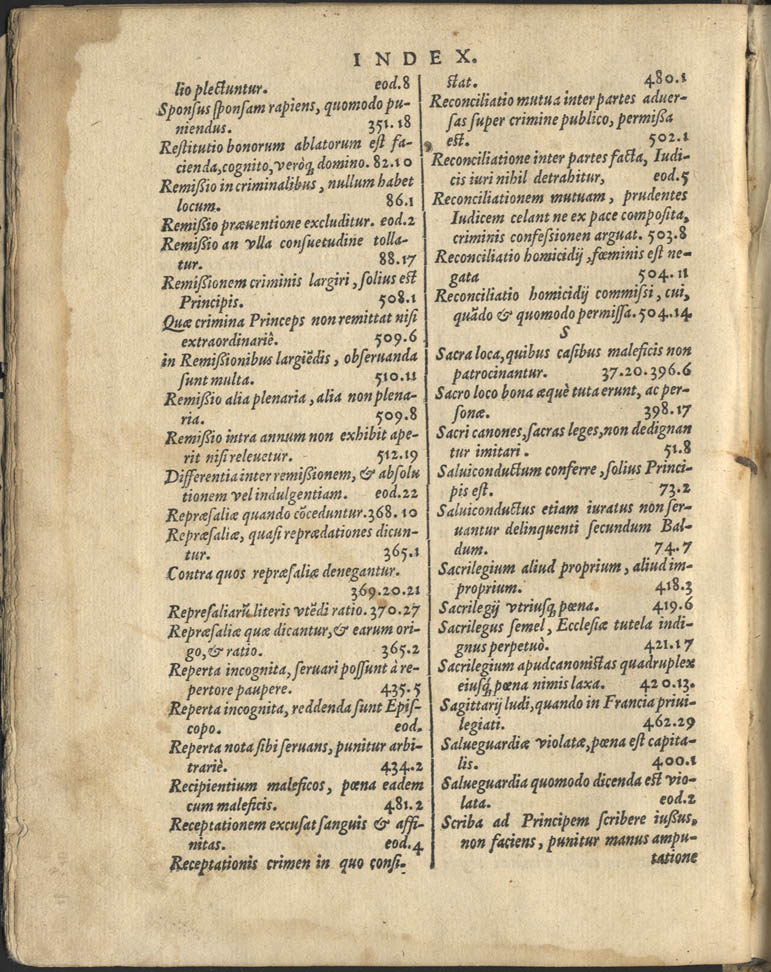 INDEX.
lio plectuntur. eod.8
Sponsus sponsam rapiens, quomodo pu-
niendus. 351.18
Restitutio bonorum ablatorum est fa-
cienda, cognito, veròq; domino. 82.10
Remißio in criminalibus, nullum habet
locum. 86.1
Remißio præuentione excluditur. eod.2
Remißio an vlla consuetudine tolla-
tur. 88.17
Remißionem criminis largiri, solius est
Principis. 508.1
Quæ crimina Princeps non remittat nisi
extraordinariè. 509.6
in Remißionibus largiẽdis, obseruanda
sunt multa. 510.11
Remißio alia plenaria, alia non plena-
ria. 509.8
Remißio intra annum non exhibit ape-
rit nisi releuetur. 512.19
Differentia inter remißionem, & absolu
tionem vel indulgentiam. eod.22
Repræsaliæ quando cõceduntur. 368.10
Repræsaliæ, quasi reprædationes dicun-
tur. 365.1
Contra quos repræsaliæ denegantur.
369.20.21
Represaliarũ literis vtẽdi ratio. 370.27
Repræsaliæ quæ dicantur, & earum ori-
go, & ratio. 365.2
Reperta incognita, seruari possunt à re-
pertore paupere. 435.5
Reperta incognita, reddenda sunt Epis-
copo. eod.
Reperta nota sibi seruans, punitur arbi-
trariè. 434.2
Recipientium maleficos, pœna eadem
cum maleficis. 481.2
Receptationem excusat sanguis & affi-
nitas. eod.4
Receptationis crimen in quo consi-
stat. 480.1
Reconciliatio mutua inter partes aduer-
sas super crimine publico, permissa
est. 502.1
Reconciliatione inter partes facta, Iudi-
cis iuri nihil detrahitur, eod.5
Reconciliationem mutuam, prudentes
Iudicem celant ne ex pace composita,
criminis confessionen arguat. 503.8
Reconciliatio homicidij, fœminis est ne-
gata 504.11
Reconciliatio homicidij commissi, cui,
quãdo & quomodo permissa. 504.14
S
Sacra loca, quibus casibus maleficis non
patrocinantur. 37.20.396.6
Sacro loco bona æquè tuta erunt, ac per-
sonæ. 398.17
Sacri canones, sacras leges, non dedignan
tur imitari. 51.8
Saluiconductum conferre, solius Princi-
pis est. 73.2
Saluiconductus etiam iuratus non ser-
uantur delinquenti secundum Bal-
dum. 74.7
Sacrilegium aliud proprium, aliud im-
proprium. 418.3
Sacrilegij vtriusq; pœna. 419.6
Sacrilegus semel, Ecclesiæ tutela indi-
gnus perpetuò. 421.17
Sacrilegium apud canonistas quadruplex
eiusq; pœna nimis laxa. 420.13.
Sagittarij ludi, quando in Francia priui-
legiati. 462.29
Salueguardiæ violatæ, pœna est capita-
lis. 400.1
Salueguardia quomodo dicenda est vio-
lata. eod.2
Scriba ad Principem scribere iussus,
non faciens, punitur manus ampu-
tatione